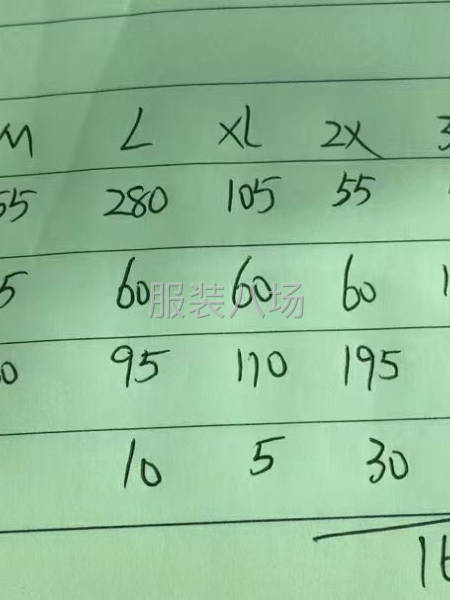 M L XL 2X 3
55 280 105 55
5 60 60 60 1
服装八场
0 95 110 195
10 5 30
1